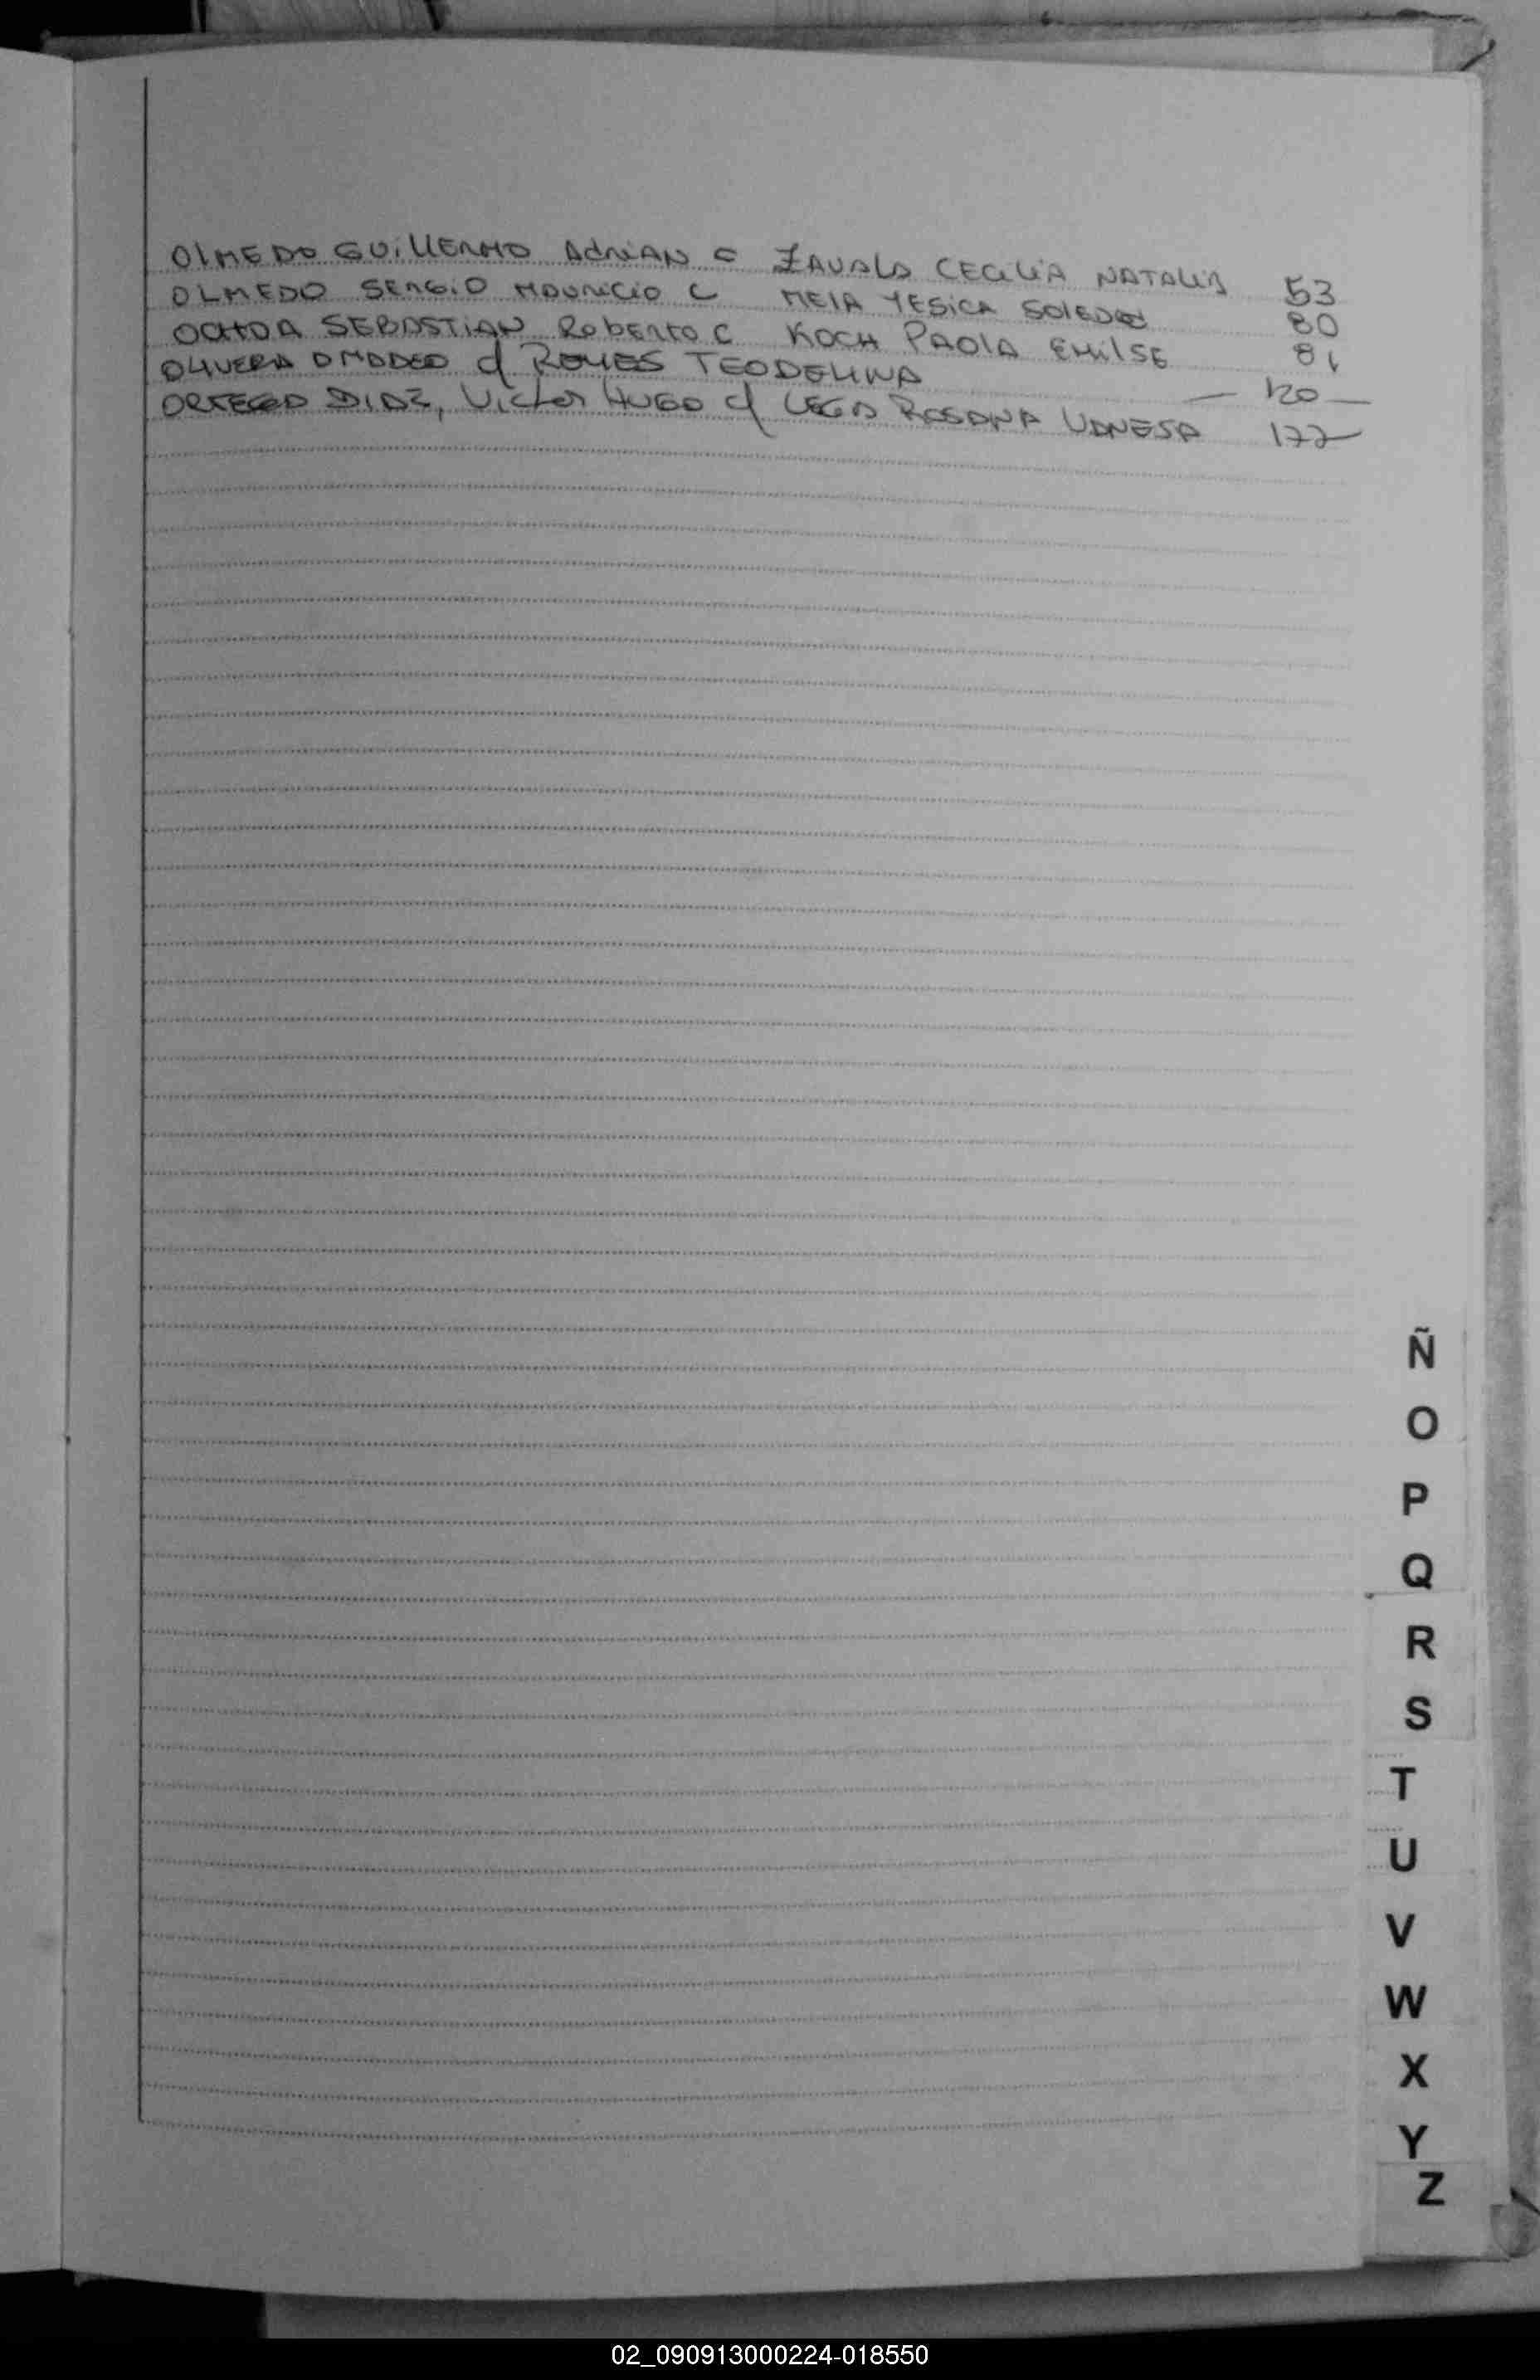 OLMEDO GUILLERMO AdriAN C ZAVALA CECILIA NATALIA 53
OLMEDO SERGIO MAURICIO C MEIA YESICA SOLEDAD 80
OCHOA SEBASTIAN RobERto C KOCH PAOLA EMILSE 81
OLIVERA AMADEO c/ REYES TEODELINA — 120 —
ORTEGA DIAZ, Victor HUGO c/ VEGA ROSANA VANESA 177
Ñ
O
P
Q
R
S
T
U
V
W
X
Y
Z
02_090913000224-018550